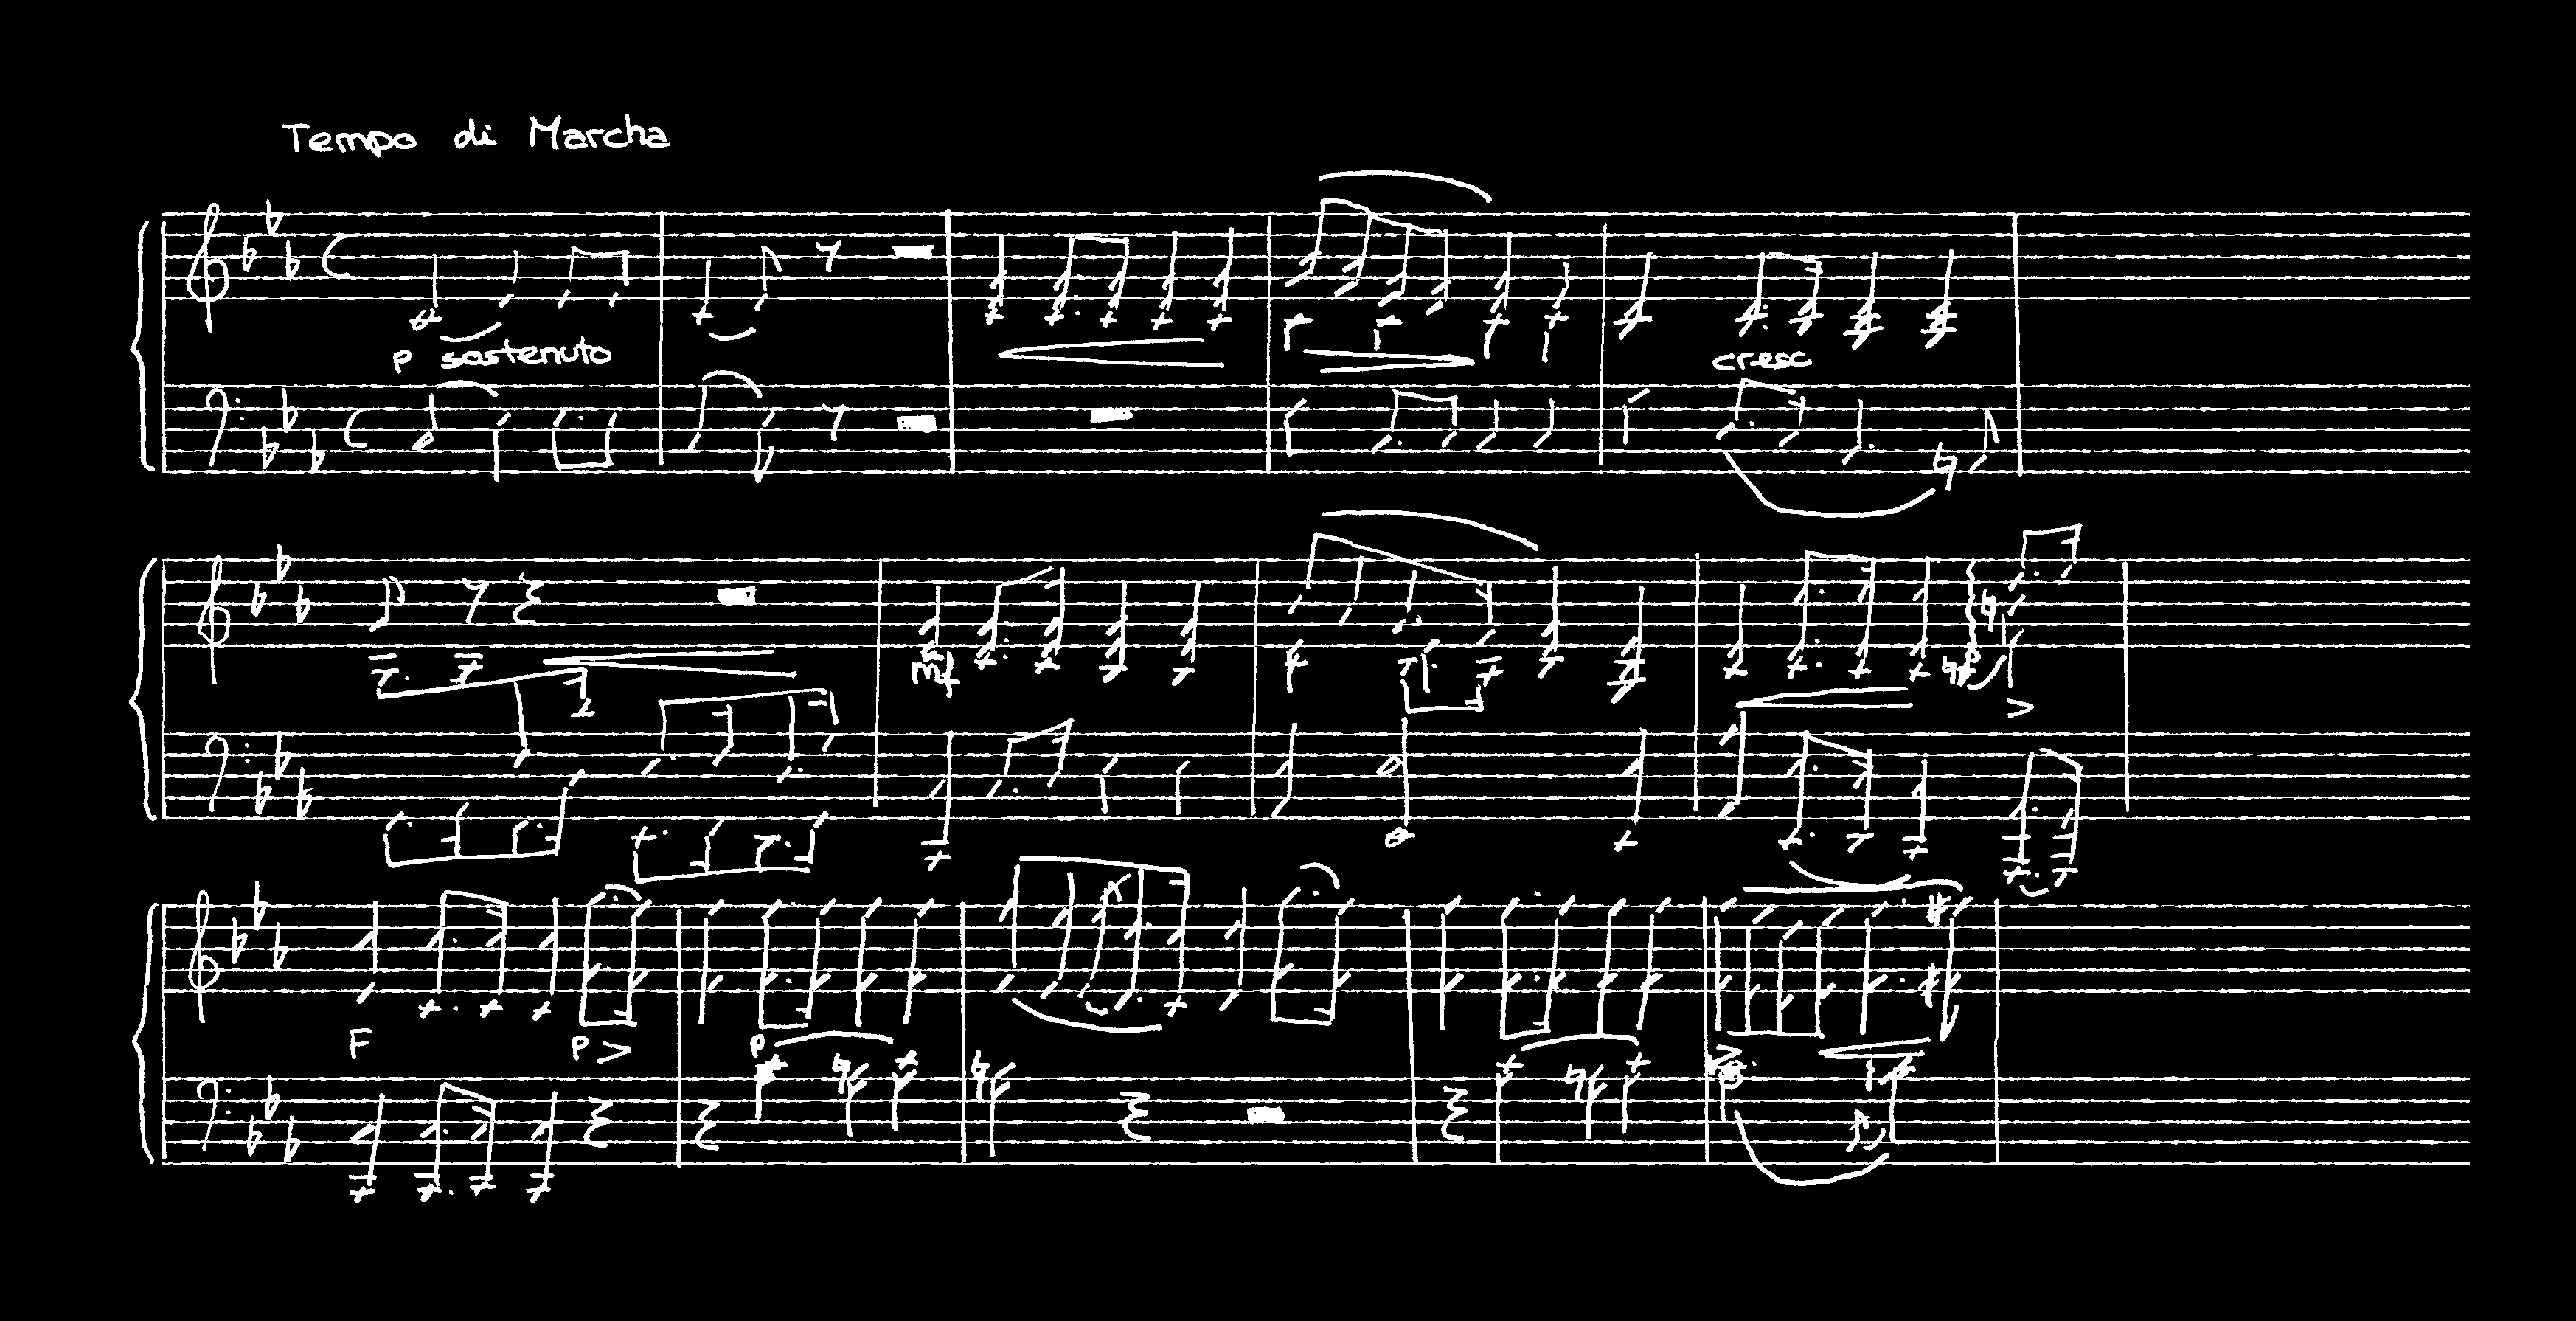 Tempo di Marcha
p sostenuto
cresc
mf
p
F p
p